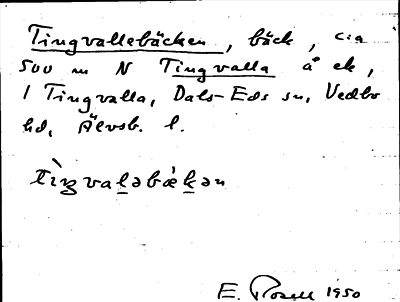 Tingvallebäcken, bäck, c:a
500 m N Tingvalla å ek,
1 Tingvalla, Dals-Eds sn, Vedbo
hd, Älvsb. l.
tìŋvaləbǽkən
E. Rosell 1950